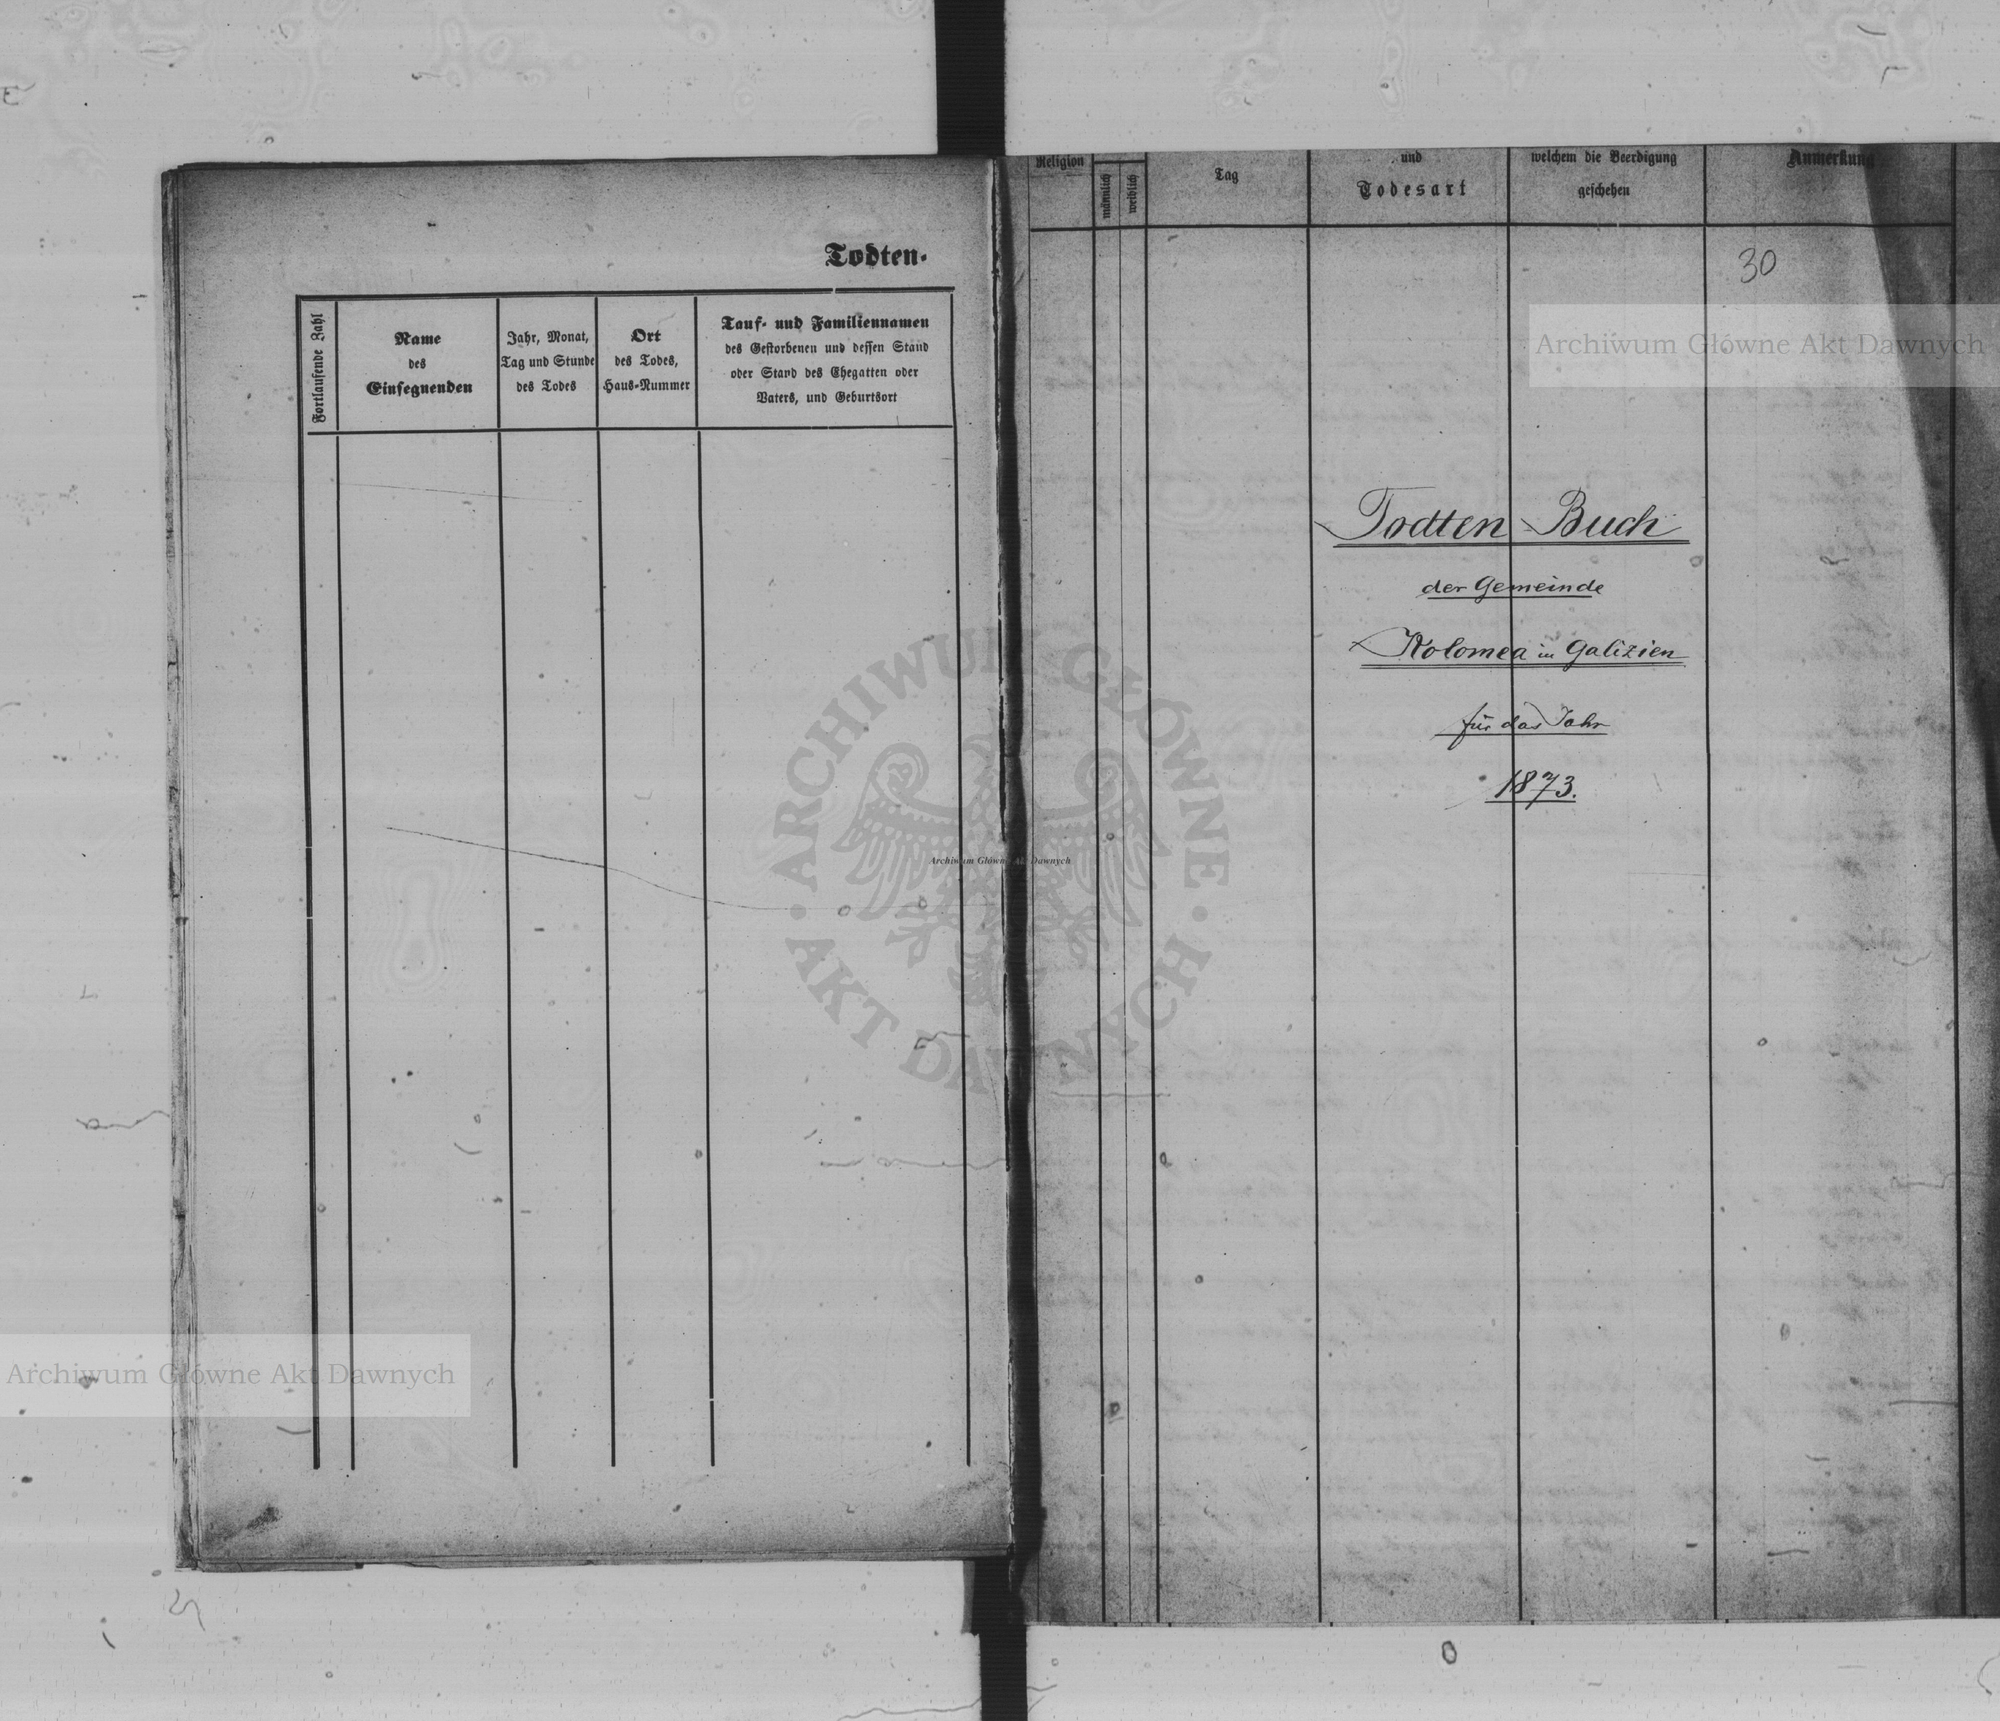 Todten-
Fortlaufende Zahl
Name
des
Einsegnenden
Jahr, Monat,
Tag und Stunde
des Todes
Ort
des Todes,
Haus-Nummer
Tauf- und Familiennamen
des Gestorbenen und dessen Stand
oder Stand des Ehegatten oder
Vaters, und Geburtsort
Religion
männlich
weiblich
Tag
und
Todesart
welchem die Beerdigung
geschehen
Anmerkung
30
Archiwum Główne Akt Dawnych
Todten-Buch
der Gemeinde
Kolomea in Galizien
für das Jahr
1873.
ARCHIWUM GŁÓWNE
AKT DAWNYCH
Archiwum Główne Akt Dawnych
Archiwum Główne Akt Dawnych